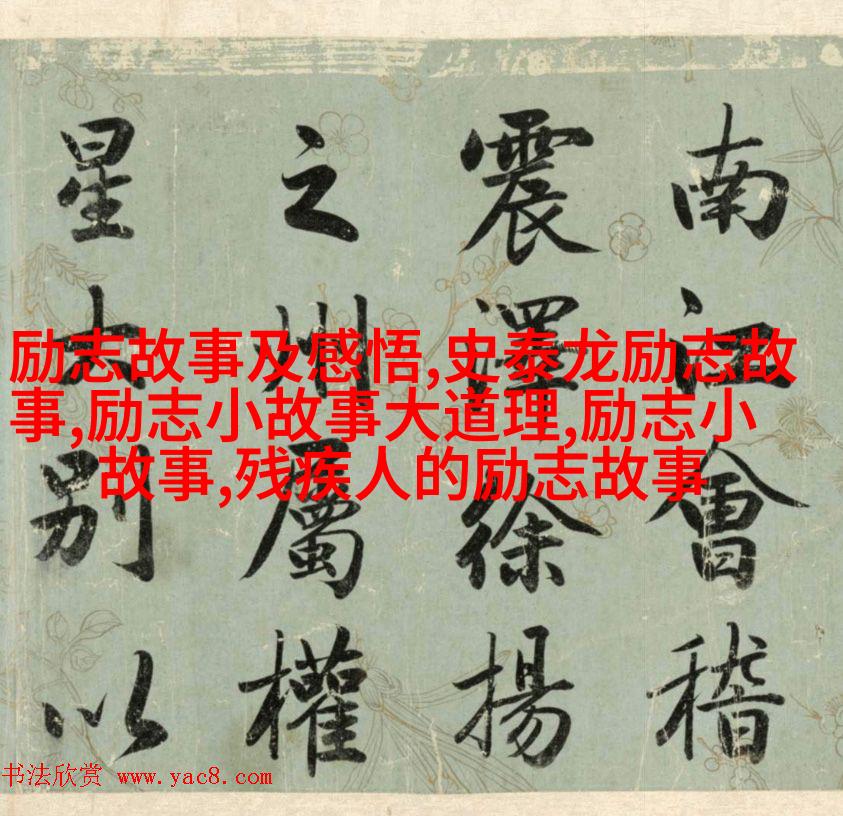 南江會稽
震澤徐揚
之州屬權
星別以
励志故事及感悟,史泰龙励志故
事,励志小故事大道理,励志小
故事,残疾人的励志故事
书法欣赏 www.yac8.com